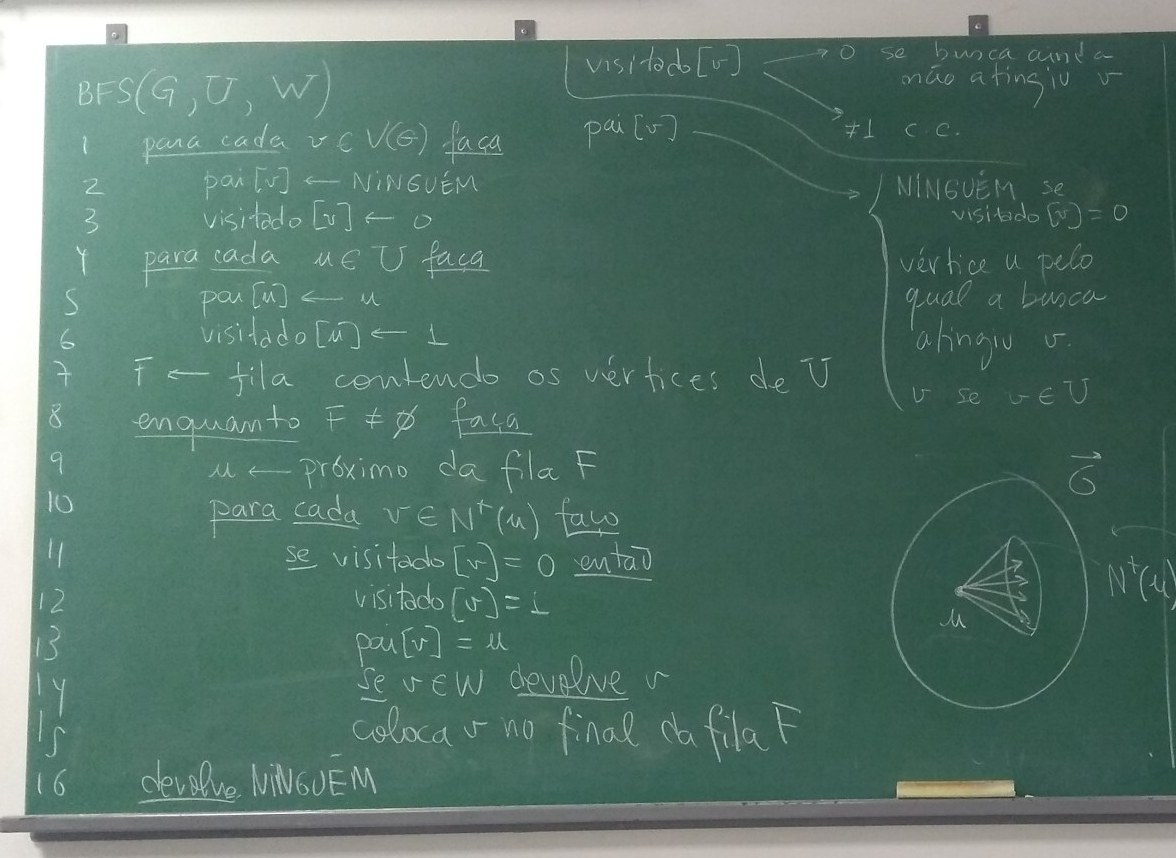 BFS(G, U, W)
1 para cada v ∈ V(G) faça
2 pai[v] ← NINGUÉM
3 visitado[v] ← 0
4 para cada u ∈ U faça
5 pai[u] ← u
6 visitado[u] ← 1
7 F ← fila contendo os vértices de U
8 enquanto F ≠ ∅ faça
9 u ← próximo da fila F
10 para cada v ∈ N⁺(u) faça
11 se visitado[v] = 0 então
12 visitado[v] = 1
13 pai[v] = u
14 se v ∈ W devolve v
15 coloca v no final da fila F
16 devolve NINGUÉM
visitado[v] → 0 se busca ainda
não atingiu v
≠1 c.c.
pai[v] → NINGUÉM se
visitado[v] = 0
vértice u pelo
qual a busca
atingiu v.
v se v ∈ U
G⃗
u
N⁺(u)